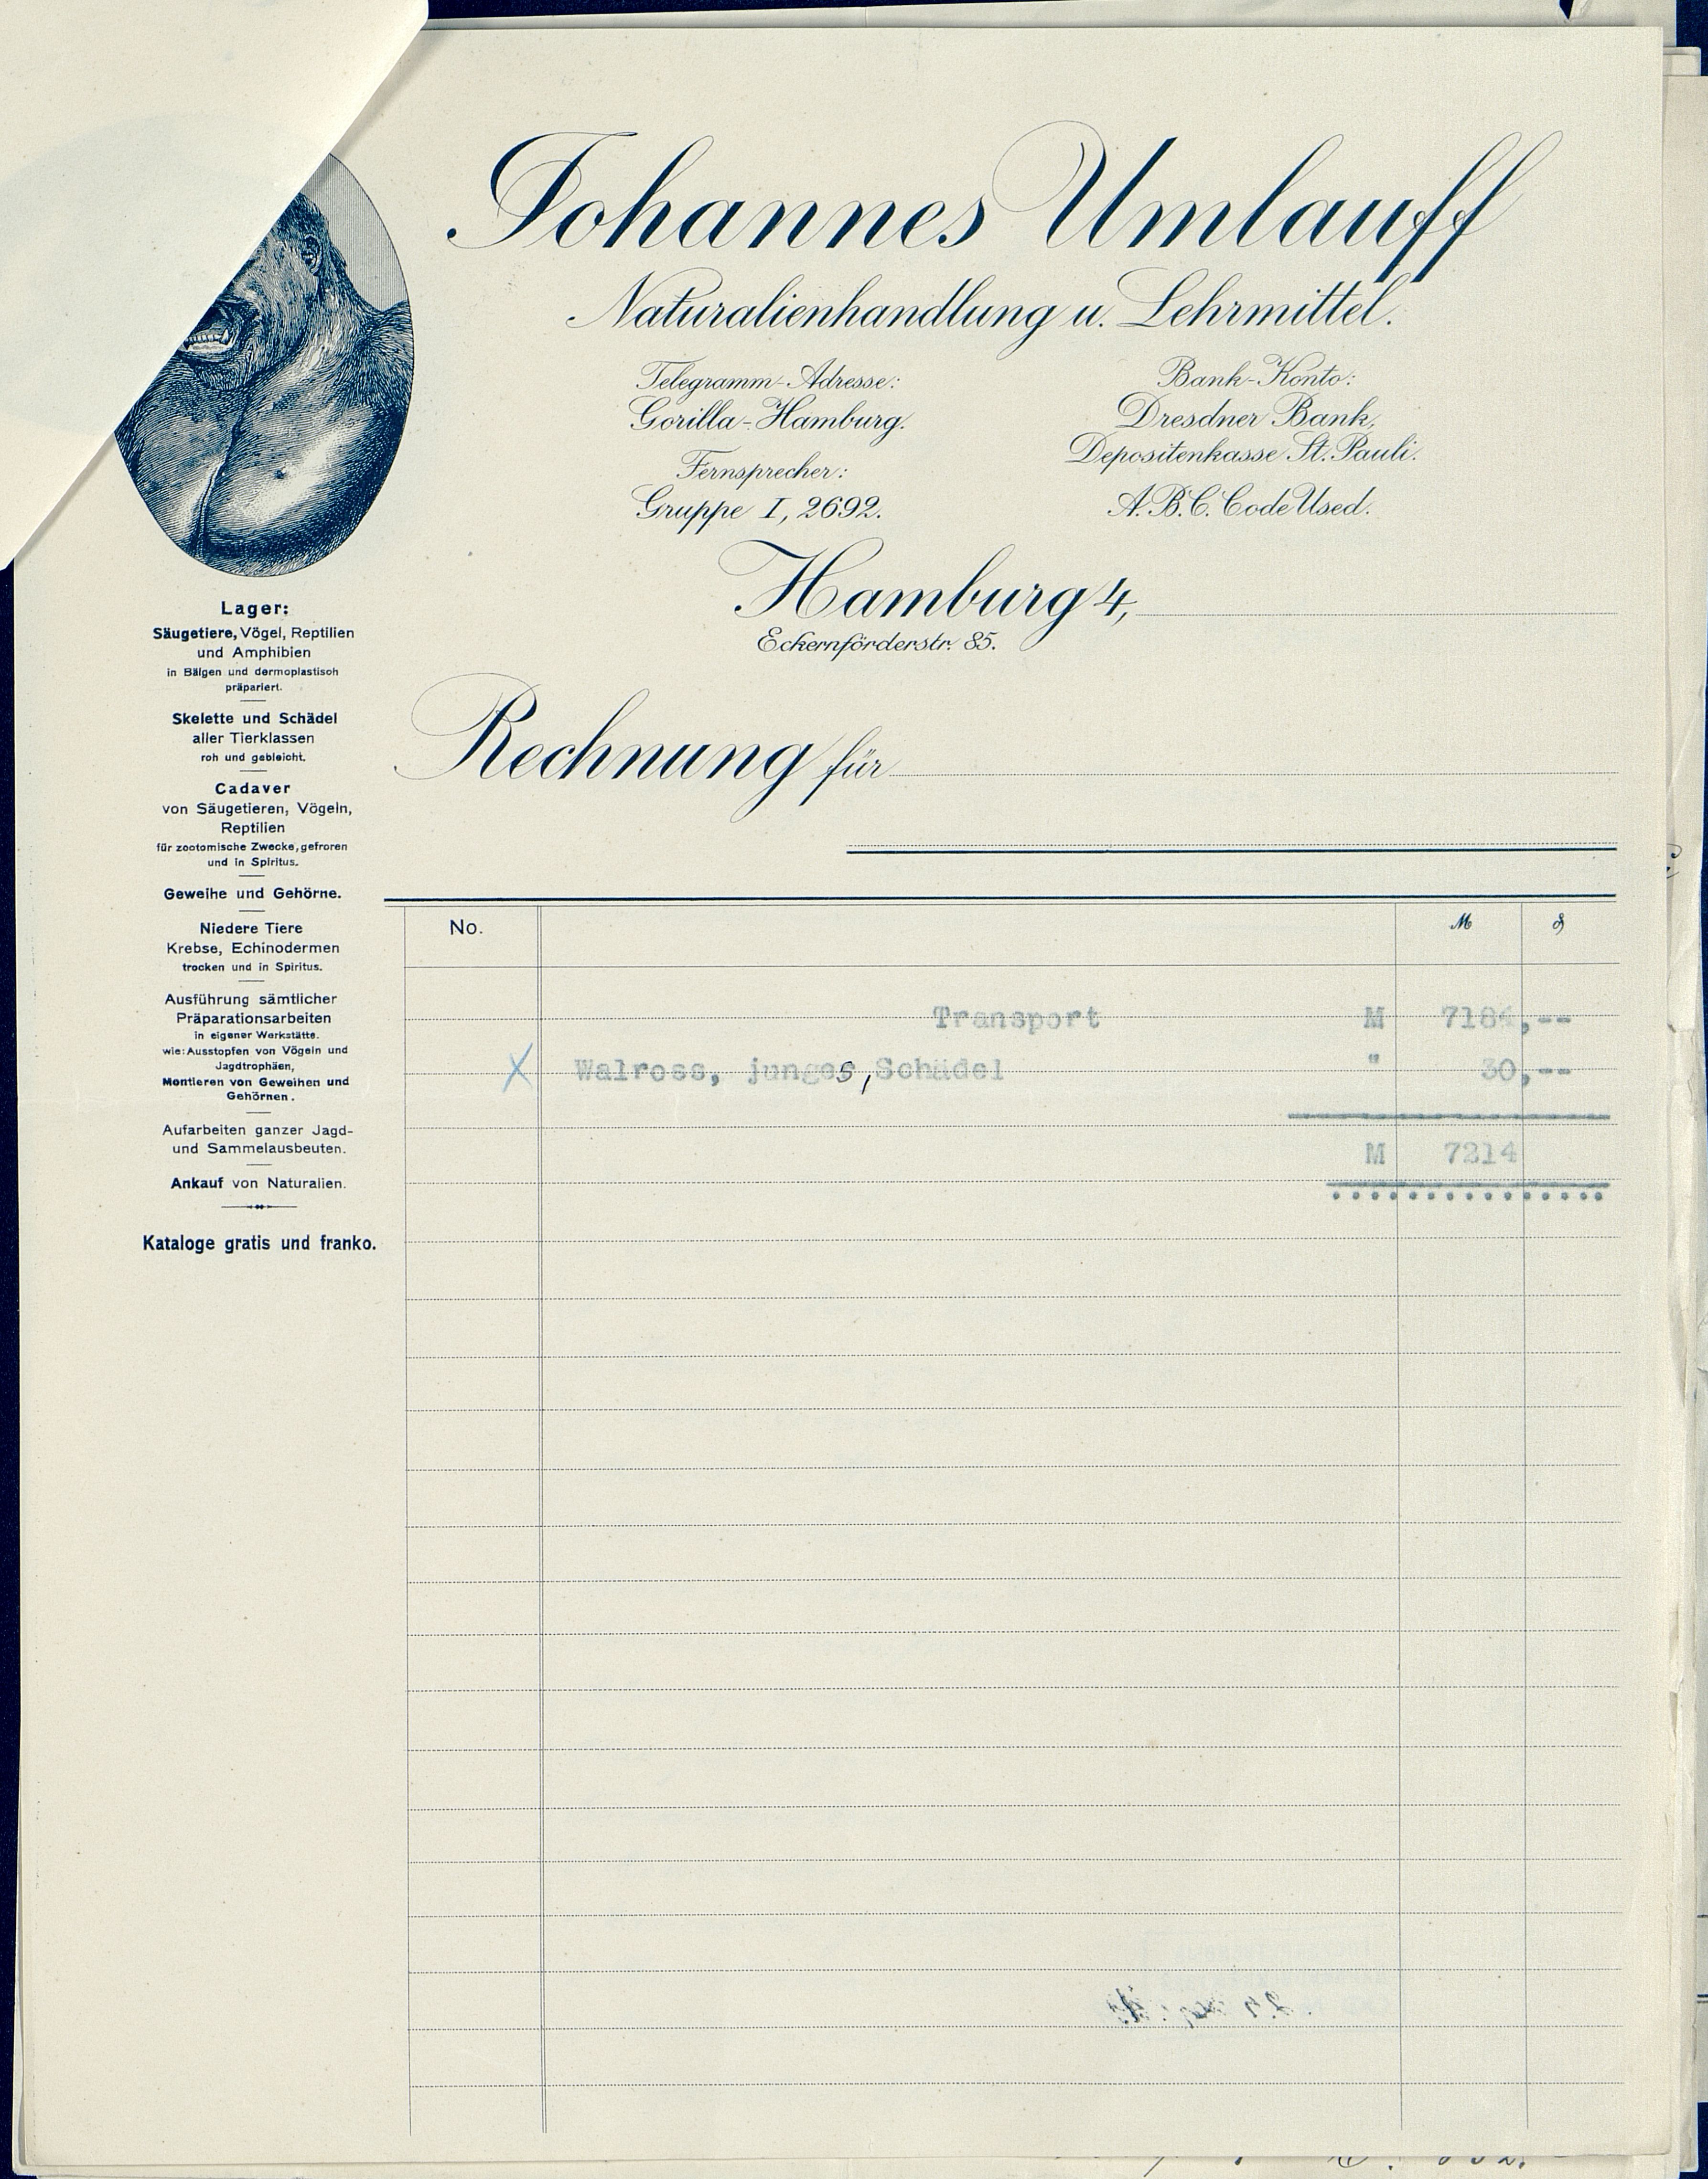 Johannes Umlauff
Naturalienhandlung u. Lehrmittel.
Telegramm-Adresse:
Gorilla-Hamburg.
Fernsprecher:
Gruppe I, 2692.
Bank-Konto:
Dresdner Bank,
Depositenkasse St. Pauli.
A.B.C. Code Used.
Hamburg 4,
Eckernförderstr. 85.
Rechnung für
Lager:
Säugetiere, Vögel, Reptilien
und Amphibien
in Bälgen und dermoplastisch
präpariert.
Skelette und Schädel
aller Tierklassen
roh und gebleicht.
Cadaver
von Säugetieren, Vögeln,
Reptilien
für zootomische Zwecke, gefroren
und in Spiritus.
Geweihe und Gehörne.
Niedere Tiere
Krebse, Echinodermen
trocken und in Spiritus.
Ausführung sämtlicher
Präparationsarbeiten
in eigener Werkstätte.
wie: Ausstopfen von Vögeln und
Jagdtrophäen,
Montieren von Geweihen und
Gehörnen.
Aufarbeiten ganzer Jagd-
und Sammelausbeuten.
Ankauf von Naturalien.
Kataloge gratis und franko.
No. M ₰
Transport M 7184,--
X Walross, junges, Schädel " 30,--
M 7214